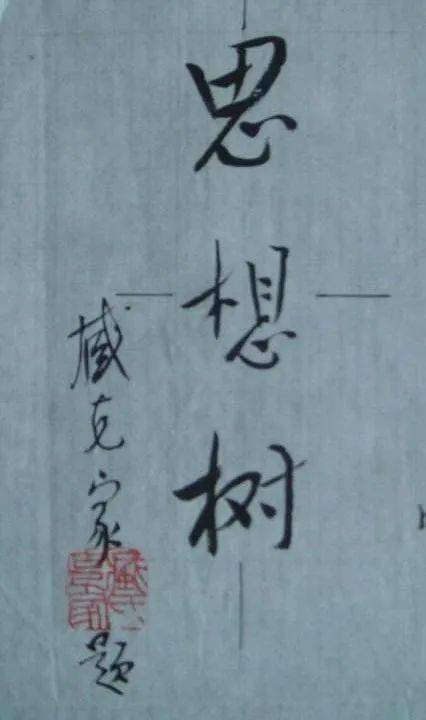 思想树
臧克家
题